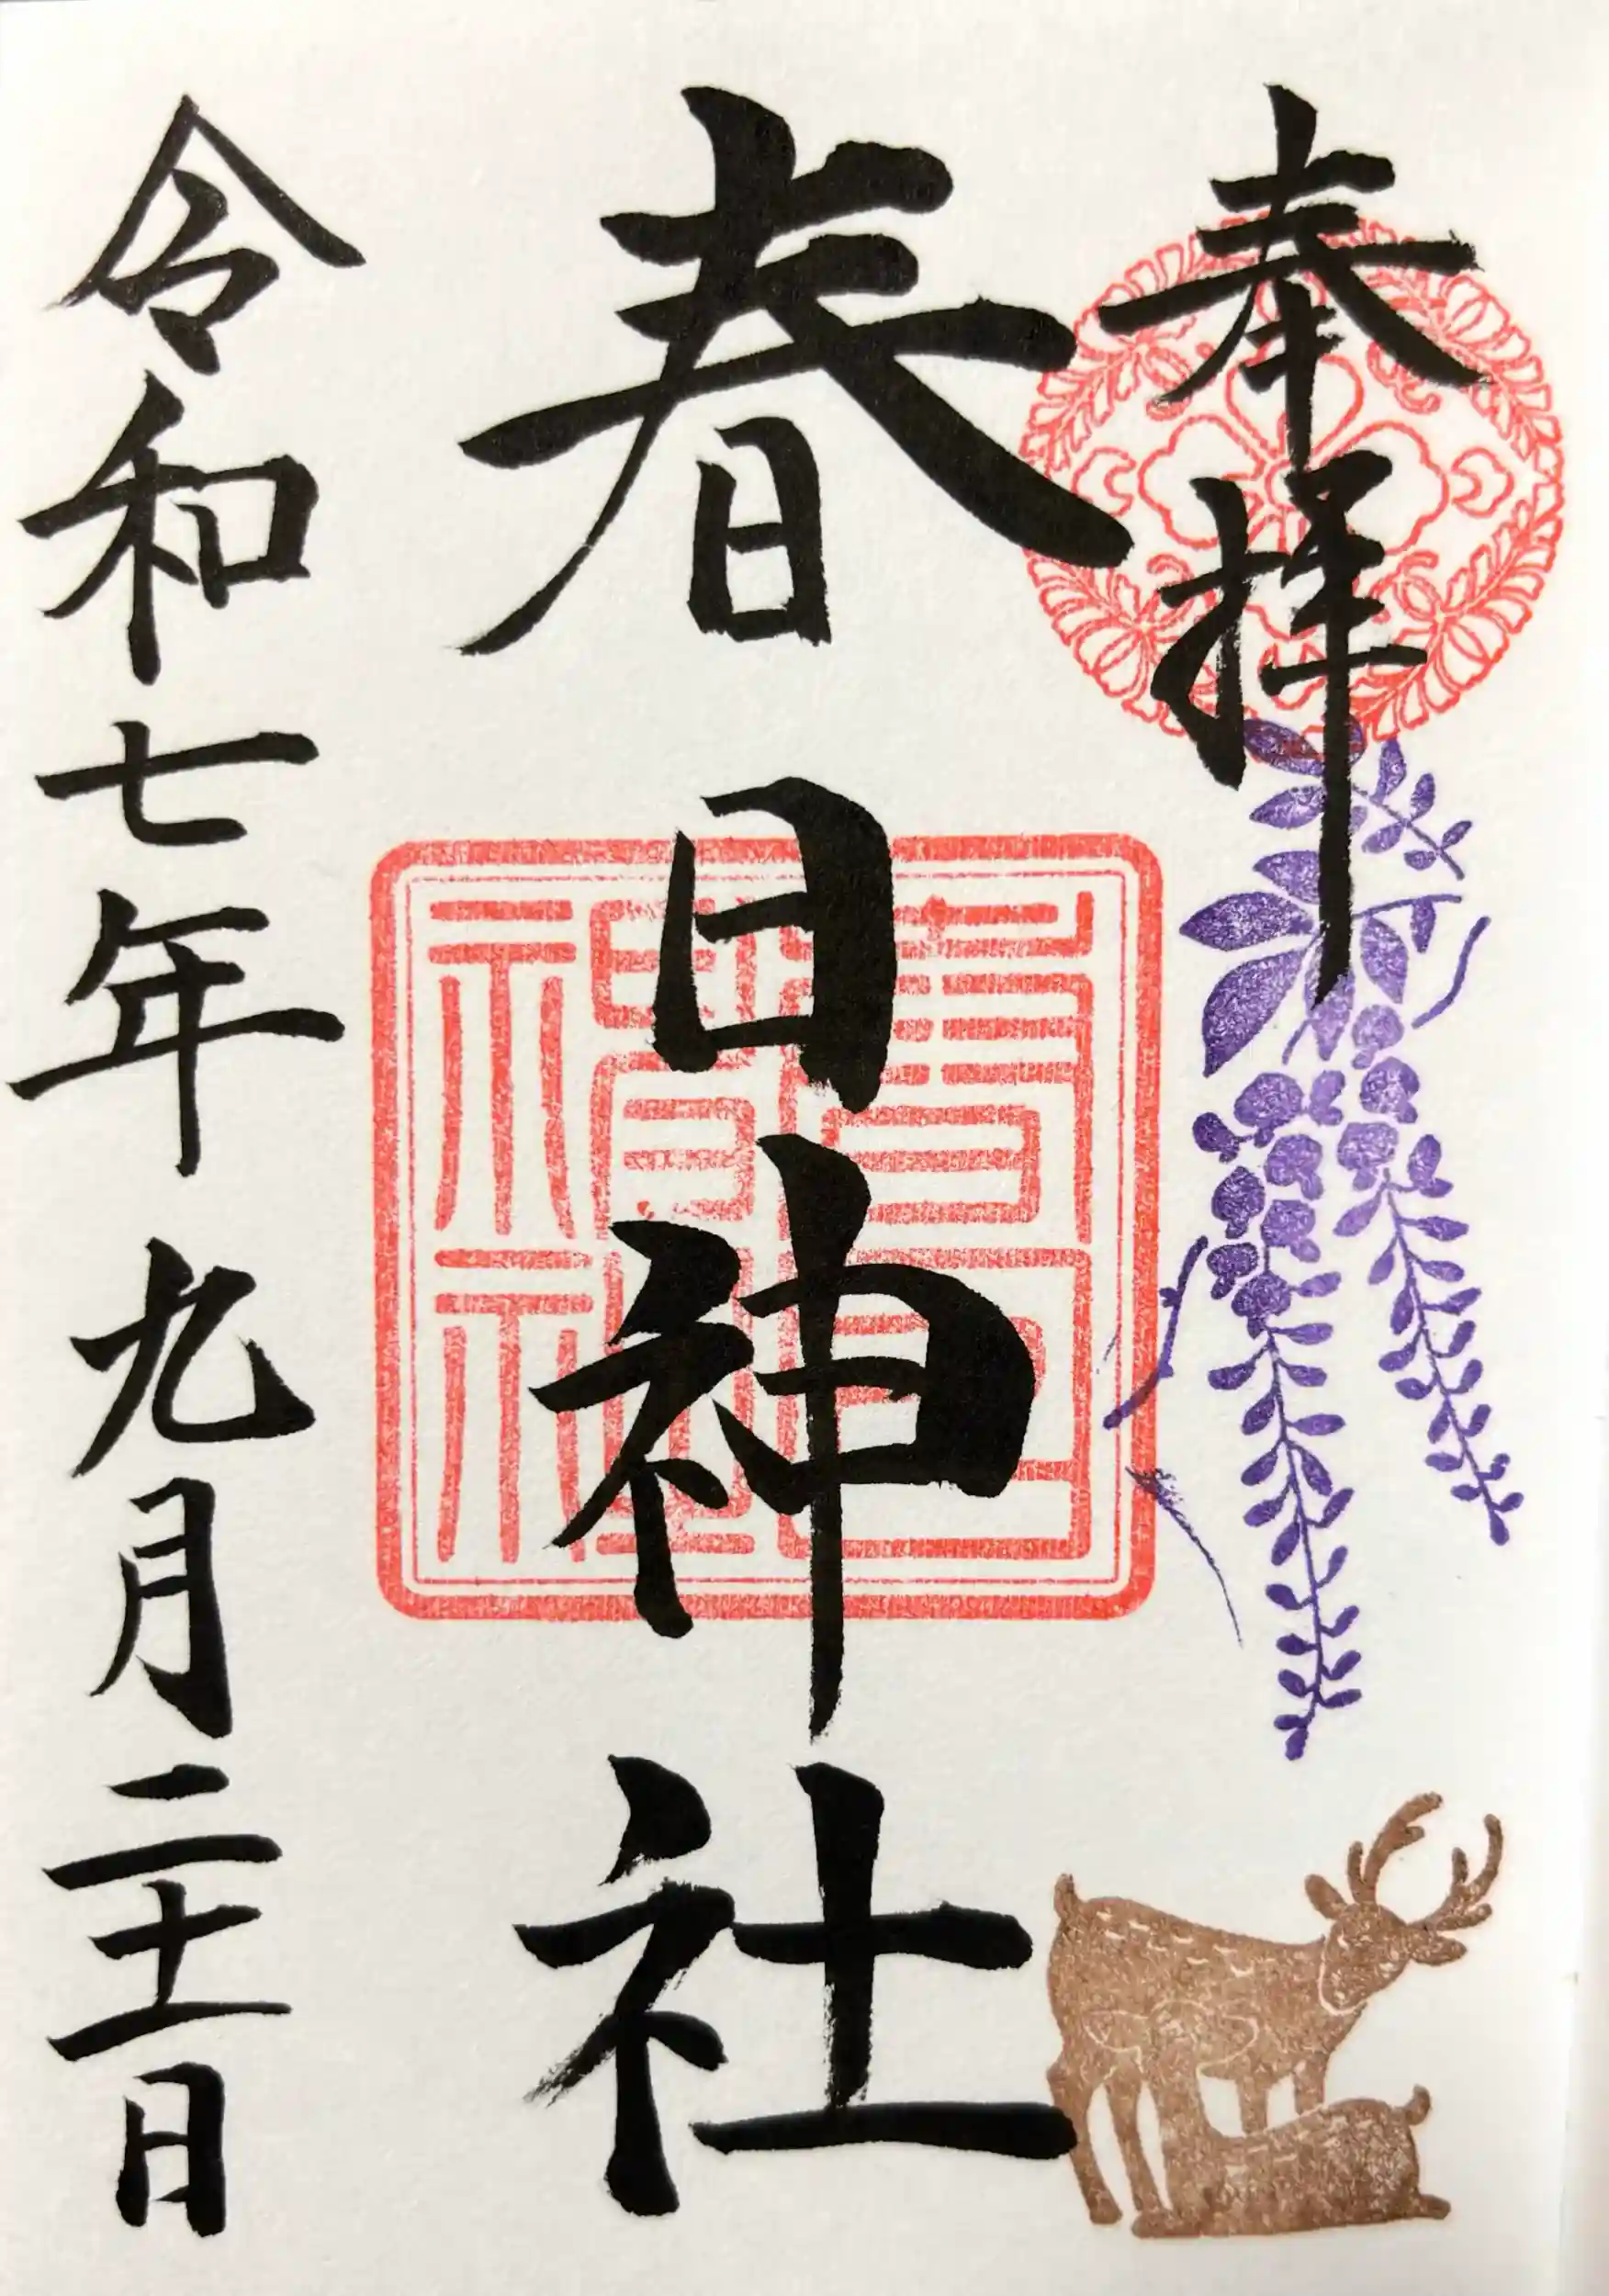 奉拝
春日神社
令和七年九月二十一日
春日神社